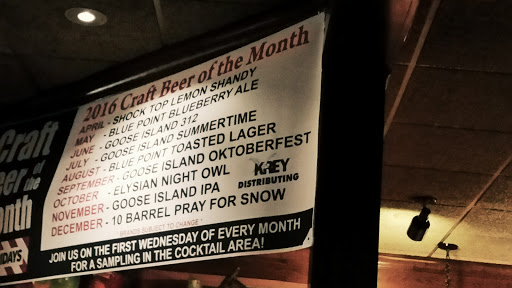 2016 Craft Beer of the Month
APRIL - SHOCK TOP LEMON SHANDY
MAY - BLUE POINT BLUEBERRY ALE
JUNE - GOOSE ISLAND 312
JULY - GOOSE ISLAND SUMMERTIME
AUGUST - BLUE POINT TOASTED LAGER
SEPTEMBER - GOOSE ISLAND OKTOBERFEST
OCTOBER - ELYSIAN NIGHT OWL
NOVEMBER - GOOSE ISLAND IPA
DECEMBER - 10 BARREL PRAY FOR SNOW
BRANDS SUBJECT TO CHANGE
KREY
DISTRIBUTING
JOIN US ON THE FIRST WEDNESDAY OF EVERY MONTH
FOR A SAMPLING IN THE COCKTAIL AREA!
Craft
eer of the
onth
IDAYS